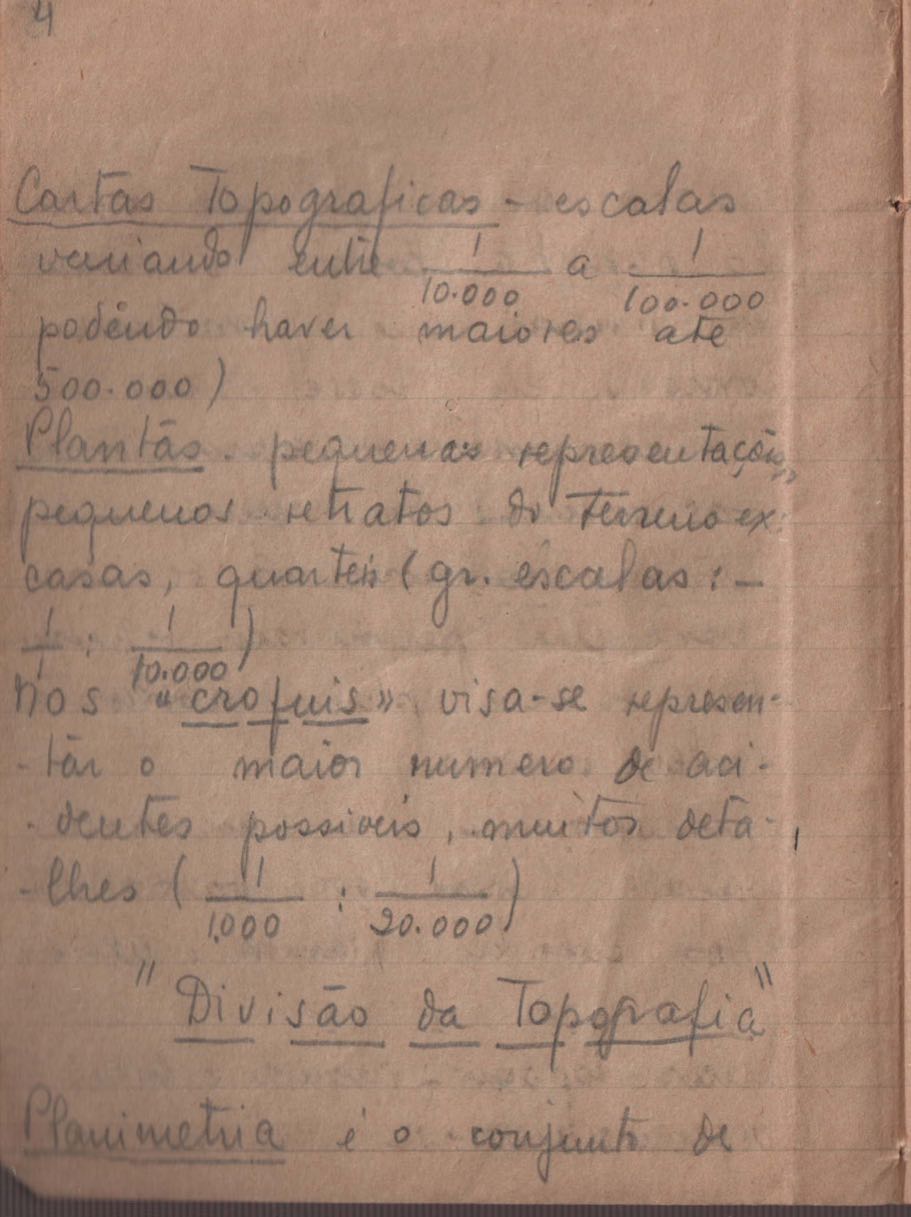 4
Cartas Topograficas - escalas
variando entre 1/10.000 a 1/100.000
podendo haver maiores até
500.000)
Plantas - pequenas representações
pequenos retratos do terreno ex:
casas, quarteis (gr. escalas: -
1/1 : 1/10.000)
Nos "croquis" visa-se represen-
-tar o maior numero de aci-
-dentes possiveis, muitos deta-
-lhes (1/1.000 : 1/20.000)
"Divisão da Topografia"
Planimetria é o conjunto de